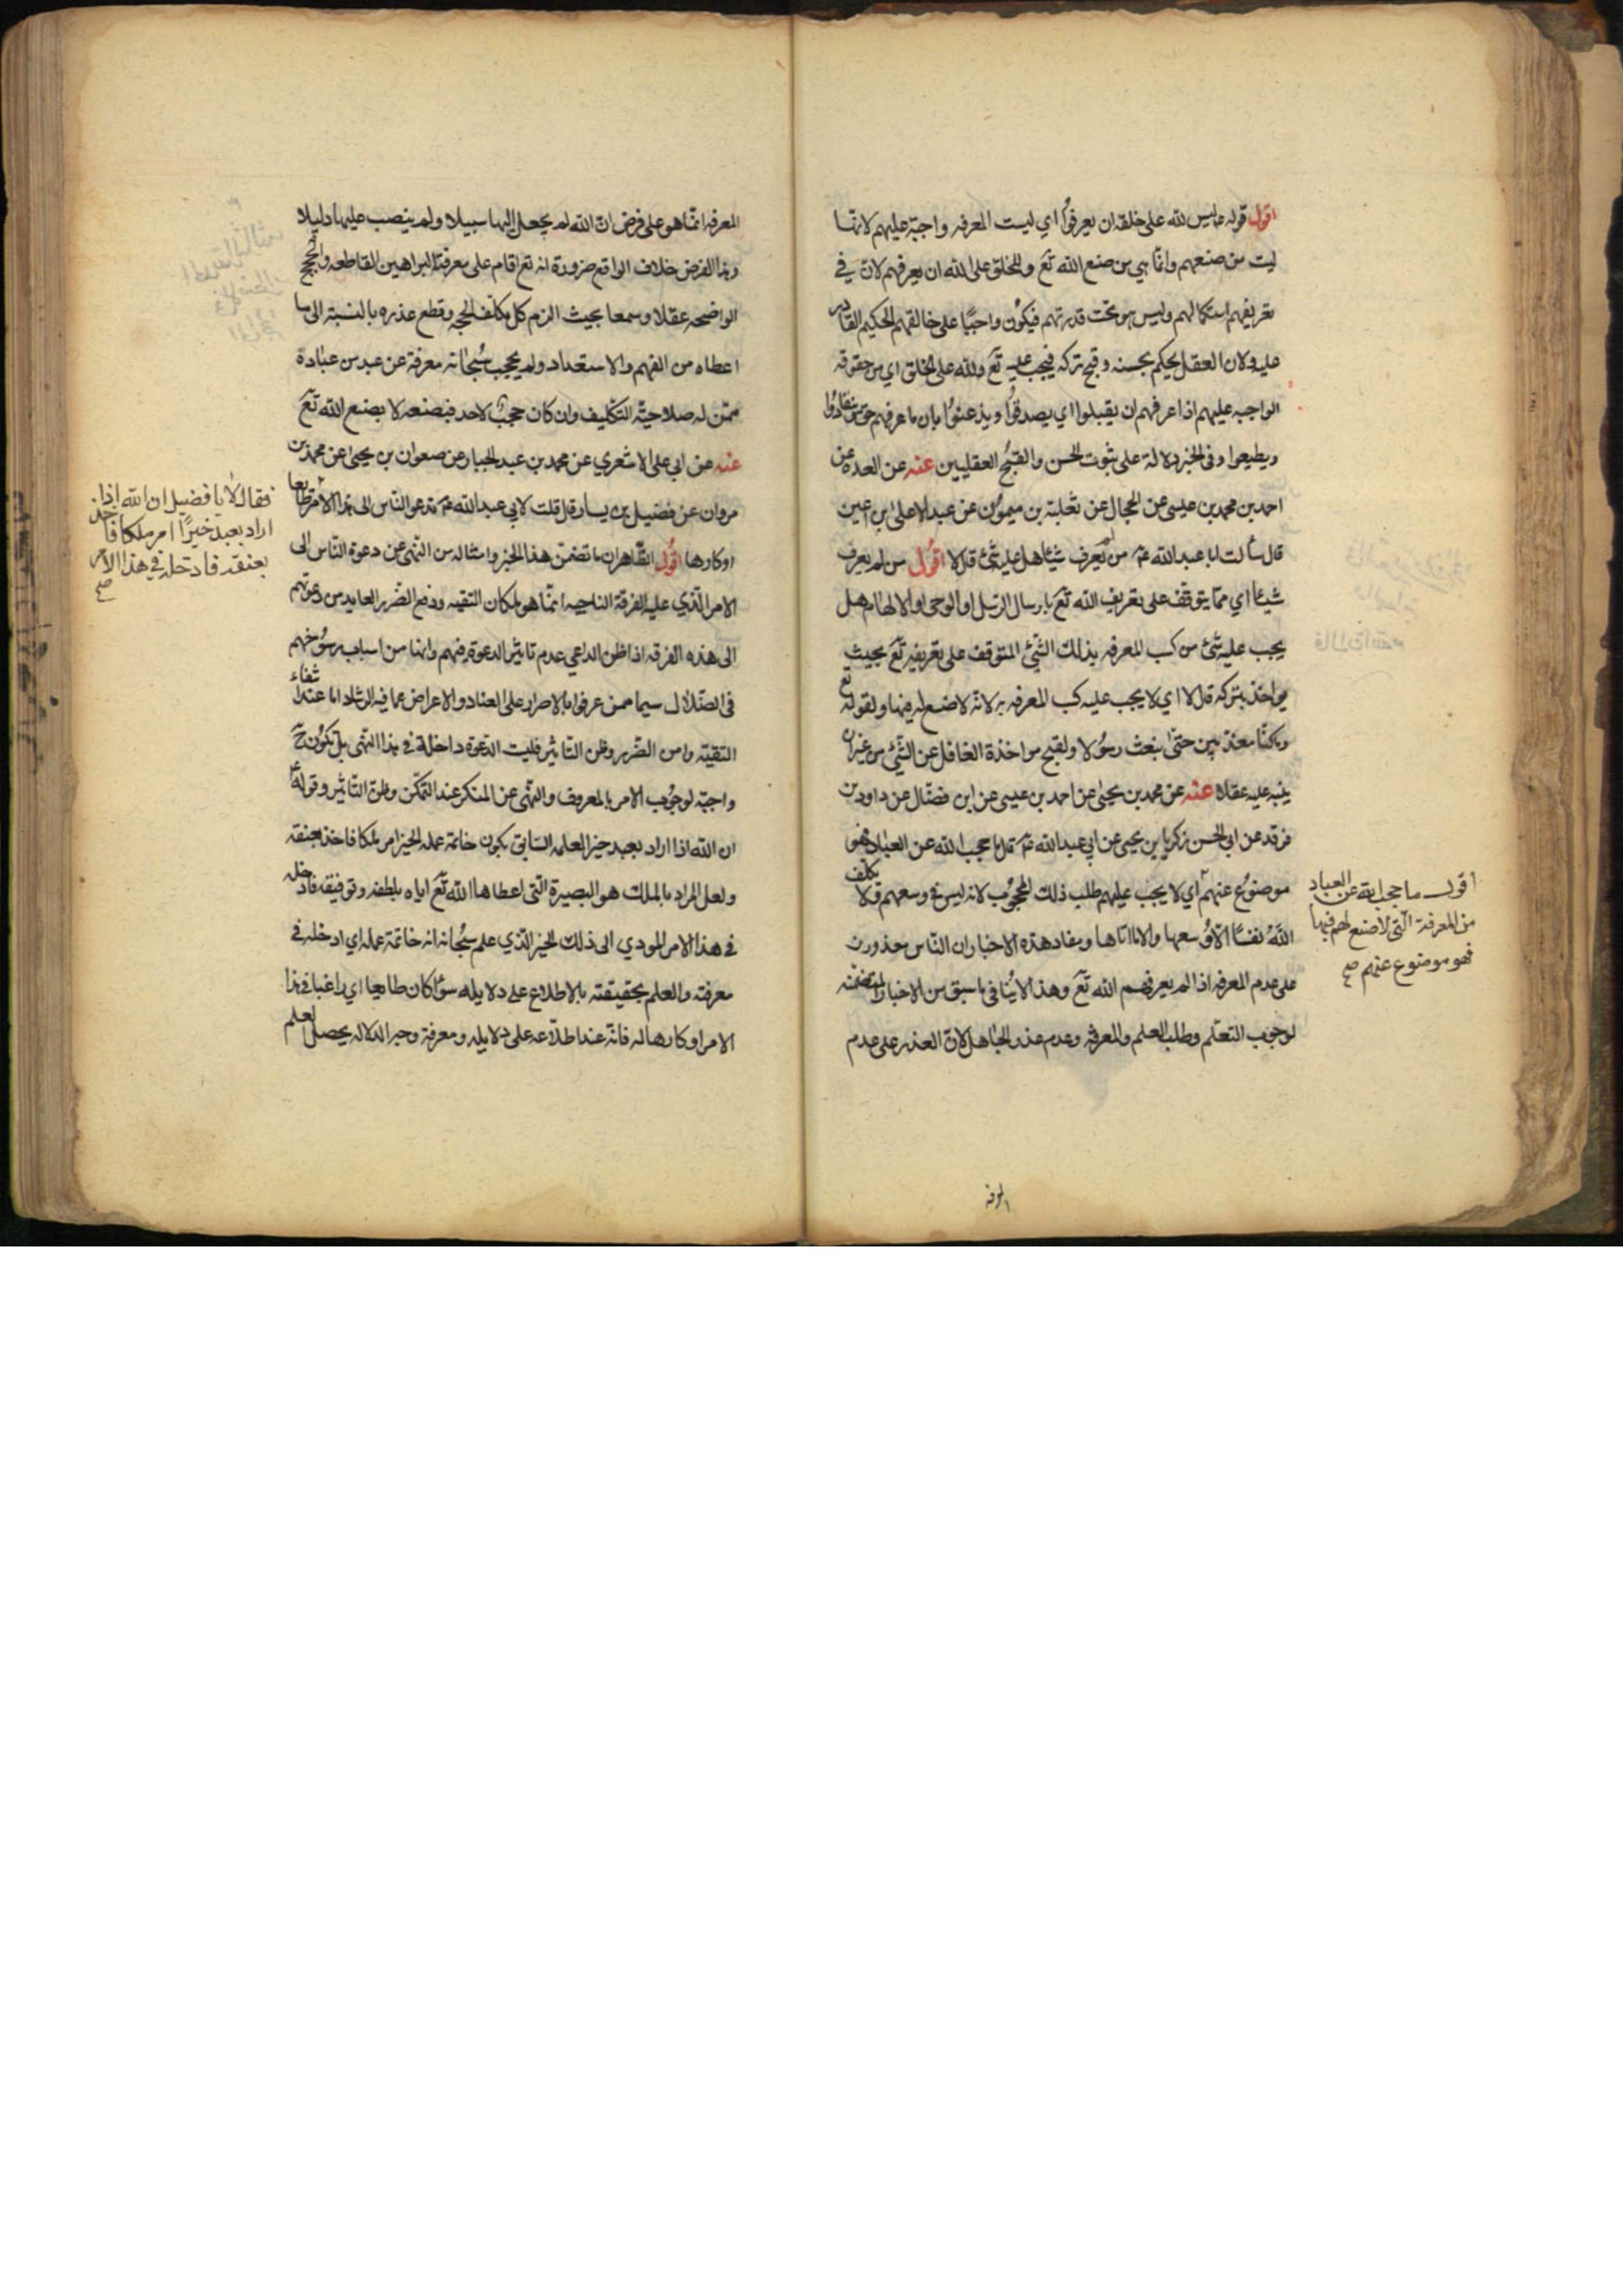 اقول قوله ع ليس لله على خلقه ان يعرفوا اي ليست المعرفه واجبة عليهم لانها
ليت من صنعهم وانما هي من صنع الله تع وللخلق على الله ان يعرفهم لان في
تعريفهم استكمالهم وليس هو تحت قدرتهم فيكون واجبا على خالقهم الحكيم القادر
عليه ولان العقل يحكم بحسنه وقبح تركه فيجب عليه تع ولله على الخلق اي من حقوقه
الواجبه عليهم اذا عرفهم ان يقبلوا اي يصدقوا ويذعنوا بان ما عرفهم حق
ويطيعوا وفى الخبر دلالة على ثبوت الحسن والقبح العقليين عنه عن العدة عن
احمد بن محمد بن عيسى عن الحجال عن ثعلبة بن ميمون عن عبد الاعلى ابن اعين
قال سألت ابا عبد الله ع من لم يعرف شيئا هل عليه شئ قل لا اقول من لم يعرف
شيئا اي مما يتوقف على تعريف الله تع بارسال الرسل او الوحى او الالهام هل
يجب عليه شئ من كسب المعرفه بذلك الشئ المتوقف على تعريفه تع بحيث
يواخذ بتركه قل لا اي لا يجب عليه كسب المعرفه به لانه لا صنع له فيها ولقوله تع
وماكنا معذبين حتى نبعث رسولا ولقبح مواخذة الغافل عن الشئ من غير ان
ينبه عليه عقلا عنه عن محمد بن يحيى عن احمد بن عيسى عن ابن فضال عن داود بن
فرقد عن ابى الحسن زكريا بن يحيى عن ابي عبد الله ع قل ما حجب الله عن العباد فهو
موضوع عنهم اي لا يجب عليهم طلب ذلك المحجوب لانه ليس في وسعهم ولا يكلف
الله نفسا الا وسعها والا ما اتاها ومفاد هذه الاخبار ان الناس معذورون
على عدم المعرفه اذا لم يعرفهم الله تع وهذا لا ينافى ما سبق من الاخبار المتضمنه
لوجوب التعلم وطلب العلم والمعرفه وعدم عذر الجاهل لان العذر على عدم
المعرفه
اقول ما حجب الله عن العباد
من المعرفة التى لا صنع لهم فيها
فهو موضوع عنهم صح
المعرفه انما هو على فرض ان الله لم يجعل اليها سبيلا ولم ينصب عليها دليلا
وهذا الفرض خلاف الواقع ضرورة انه تع اقام على معرفته البراهين القاطعه والحجج
الواضحه عقلا وسمعا بحيث الزم كل مكلف الحجه وقطع عذره بالنسبة الى ما
اعطاه من الفهم والاستعداد ولم يحجب سبحانه معرفة عن عبد من عباده
ممن له صلاحية التكليف وان كان حجب لاحد فبصنعه لا بصنع الله تع
عنه عن ابي على الاشعري عن محمد بن عبد الجبار عن صفوان بن يحيى عن محمد بن
مروان عن فضيل بن يسار قل قلت لابى عبد الله ع ندعو الناس الى هذا الامر طايعا
او كارها اقول الظاهر ان ما تضمن هذا الخبر وامثاله من النهى عن دعوة الناس الى
الامر الذي عليه الفرقة الناجيه انما هو لمكان التقيه ودفع الضرر العايد من دعوتهم
الى هذه الفرقه اذا ظن الداعي عدم تاثير الدعوة فيهم وانها من اسباب رسوخهم
فى الضلال سيما ممن عرفوا بالاصرار على العناد والاعراض عما فيه الرشاد اما عند انتفاء
التقيه وامن الضرر وظن التاثير فليت الدعوة داخلة في هذا النهى بل تكون ح
واجبة لوجوب الامر بالمعروف والنهى عن المنكر عند التمكن وظن التاثير وقوله ع
ان الله اذا اراد بعبد خيرا لعلمه السابق بكون خاتمة عمله الخير امر ملكا فاخذ بعنقه
ولعل المراد بالملك هو البصيرة التى اعطاها الله تع اياه بلطفه وتوفيقه فادخله
فى هذا الامر المودي الى ذلك الخير الذي علم سبحانه انه خاتمة عمله اي ادخله في
معرفته والعلم بحقيقته بالاطلاع على دلايله سوا كان طايعا اي راغبا في هذا
الامر او كارها له فانه عند اطلاعه على دلايله ومعرفة وجه الدلاله يحصل العلم
فقال لا يا فضيل ان الله اذا
اراد بعبد خيرا امر ملكا فاخذ
بعنقه فادخله في هذا الامر
صح